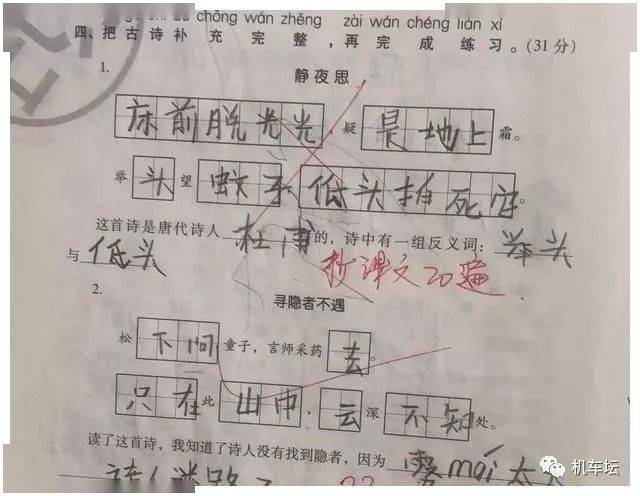 chōng wán zhěng zài wán chéng liàn xí
四、把古诗补充完整，再完成练习。(31分)
1.
静夜思
床前脱光光，疑是地上霜。
举头望蚊子低头拍死它。
这首诗是唐代诗人杜甫的，诗中有一组反义词：举头
与低头
抄课文20遍
2.
寻隐者不遇
松下问童子，言师采药去。
只在此山中，云深不知处。
读了这首诗，我知道了诗人没有找到隐者，因为雾mái太大
诗人迷路了
机车坛